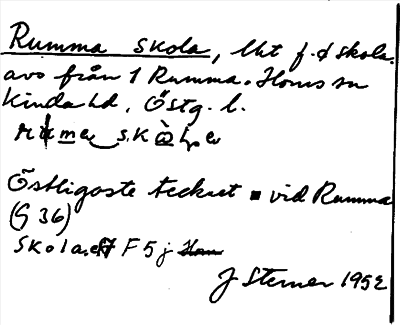 Rumma skola, lht f.d skola.
avs från 1 Rumma. Horns sn
Kinda hd. Östg. l.
Östligaste tecknet ▪ vid Rumma
(G 36)
Skola. F 5 j
J Sterner 1952